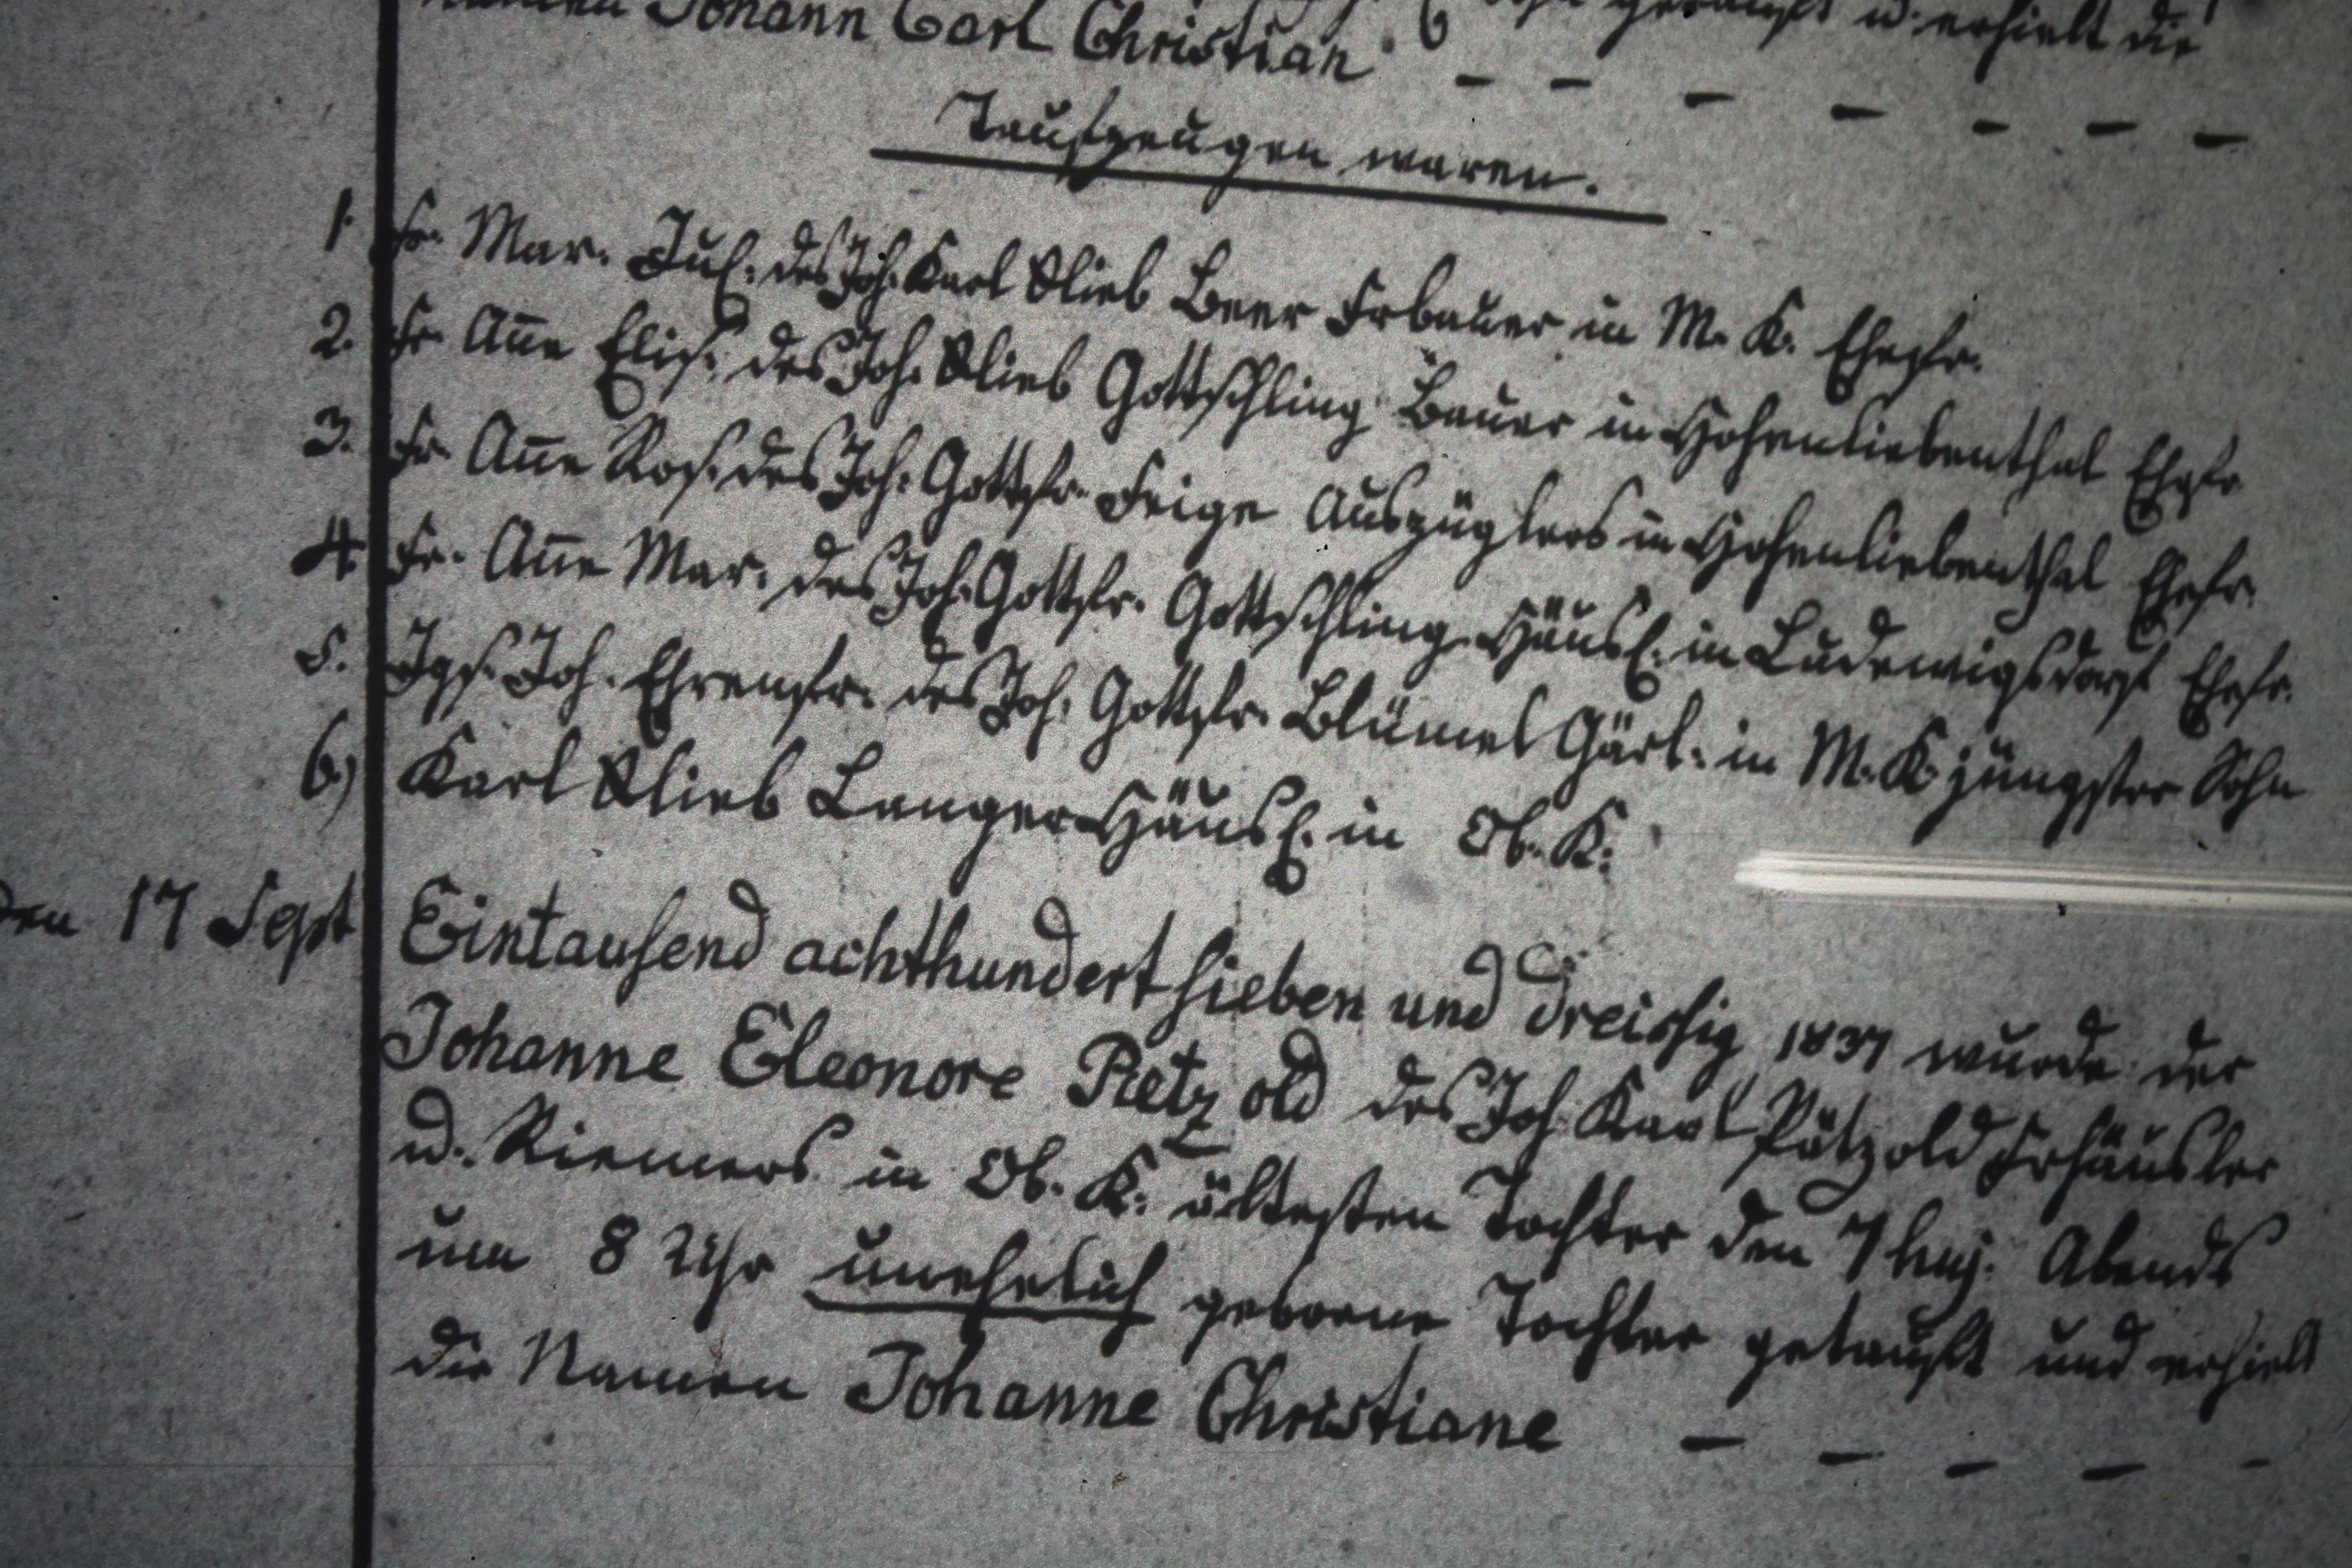 Namen Johann Carl Christian getauft u. erhielt die
Taufzeugen waren.
1. Fr. Mar. Jul. des Joh. Karl Glieb Beer Frbauer in M. K. Ehefr.
2. Fr. Añe Elis. des Joh. Glieb Gottschling Bauer in Hohenliebenthal Ehefr.
3. Fr. Añe Ros. des Joh. Gottfr. Feige Auszüglers in Hohenliebenthal Ehefr.
4. Fr. Añe Mar. des Joh. Gottfr. Gottschling Häusl. in Ludewigsdorf Ehefr.
5. Jgs. Joh. Ehrenfr. des Joh. Gottfr. Blümel Gärl. in M. K. jüngster Sohn
6.) Karl Glieb Langer Häusl. in Ob. K.
den 17 Sept Eintausend achthundert sieben und dreissig 1837 wurde der
Johanne Eleonore Pätzold des Joh Karl Pätzold Frhäusler
u. Riemers in Ob. K. ältesten Tochter den 7 huj. Abends
um 8 Uhr unehelich geborene Tochter getauft und erhielt
die Namen Johanne Christiane